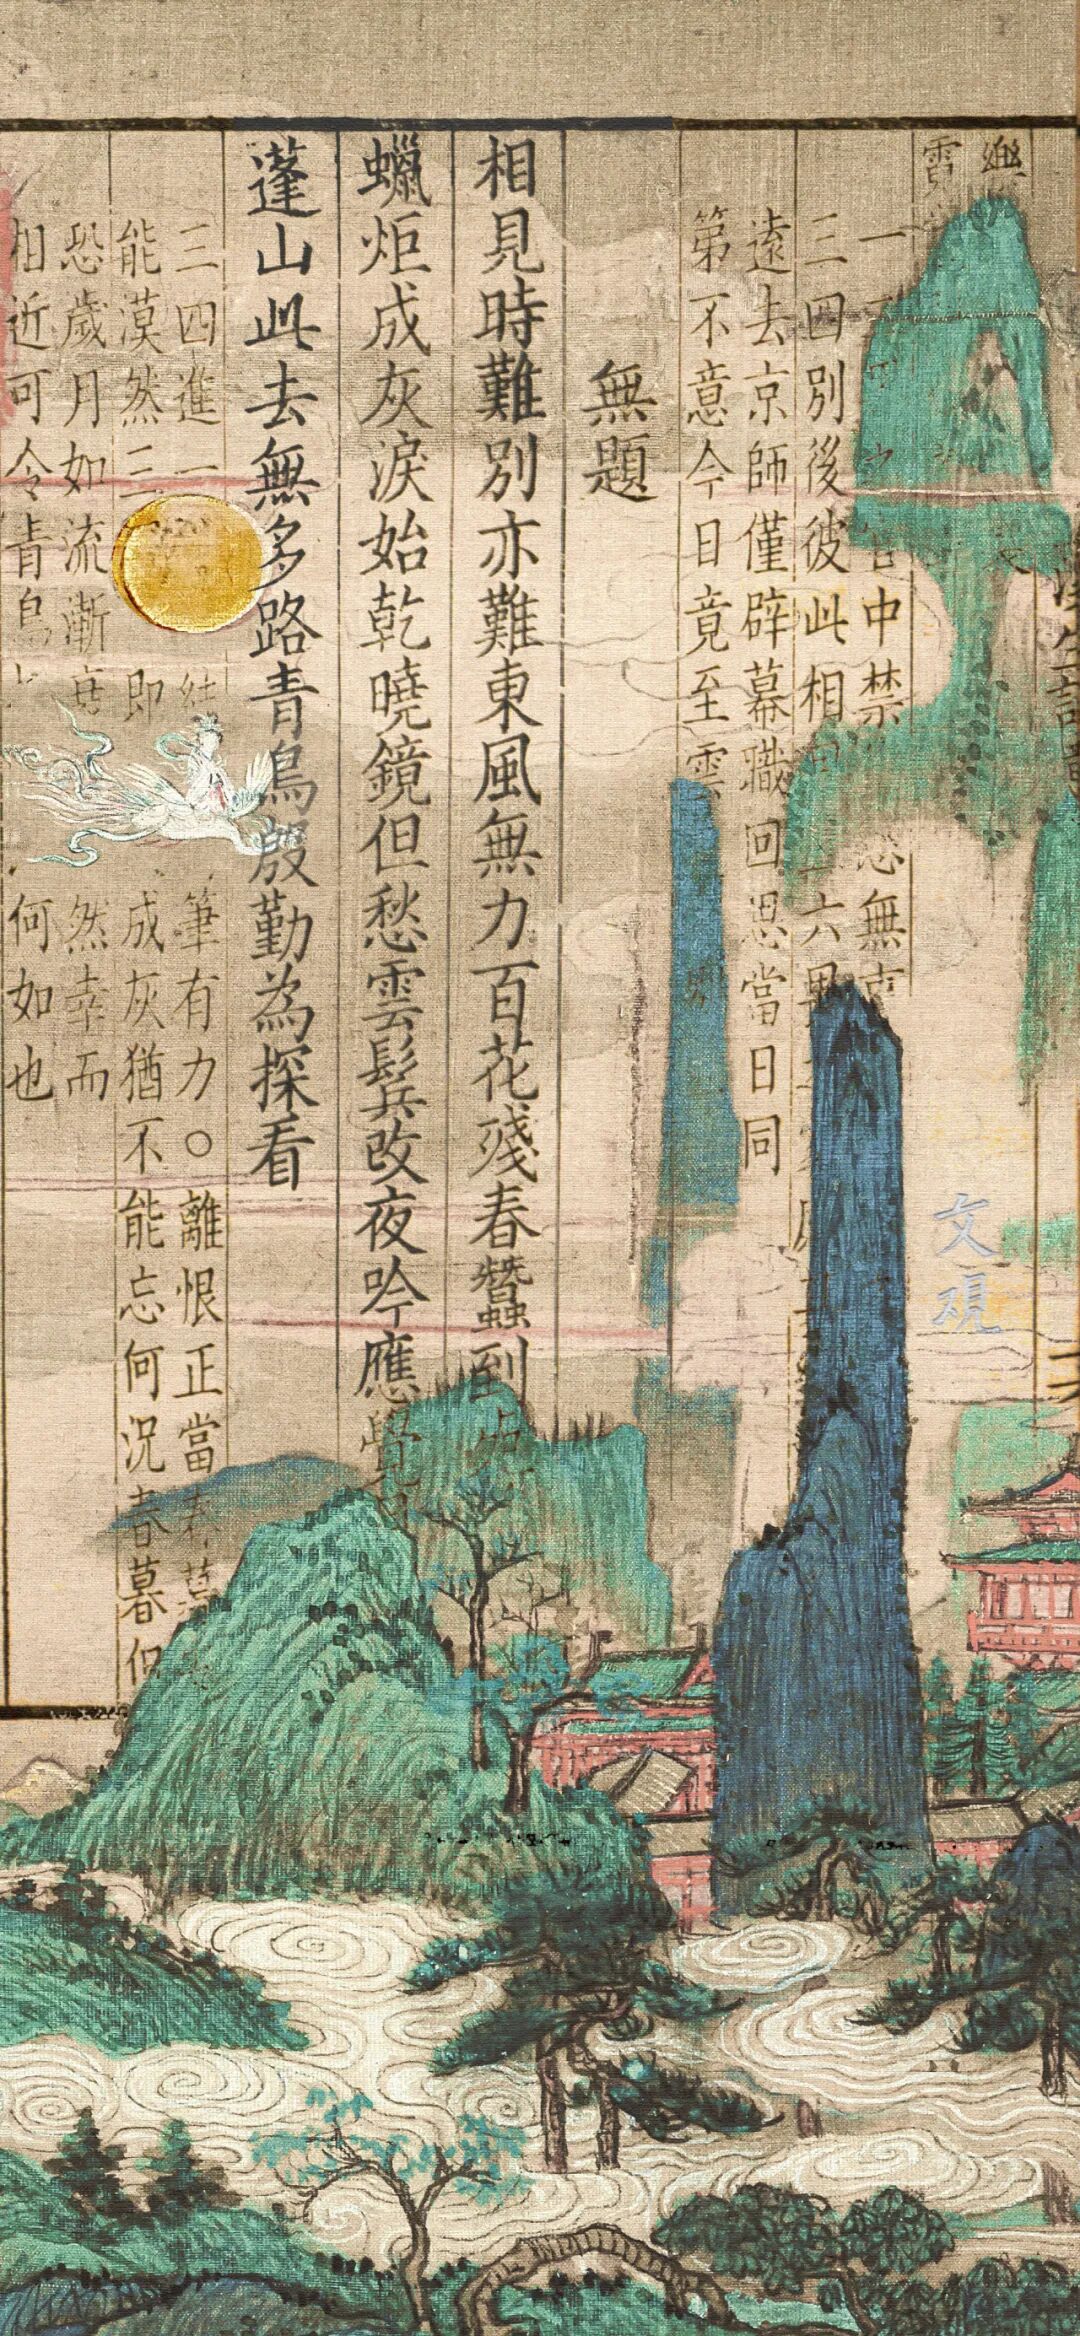 一 中禁 恐無
三四別後彼此相 六
遠去京師僅辟幕職回思當日同
第不意今日竟至雲
無題
相見時難別亦難東風無力百花殘春蠶到
蠟炬成灰淚始乾曉鏡但愁雲鬢改夜吟應覺
蓬山此去無多路青鳥殷勤為探看
三四進一 結 筆有力○離恨正當春暮
能漠然三 即 成灰猶不能忘何況春暮但
恐歲月如流漸 然幸而
相近可令青鳥 何如也
文观